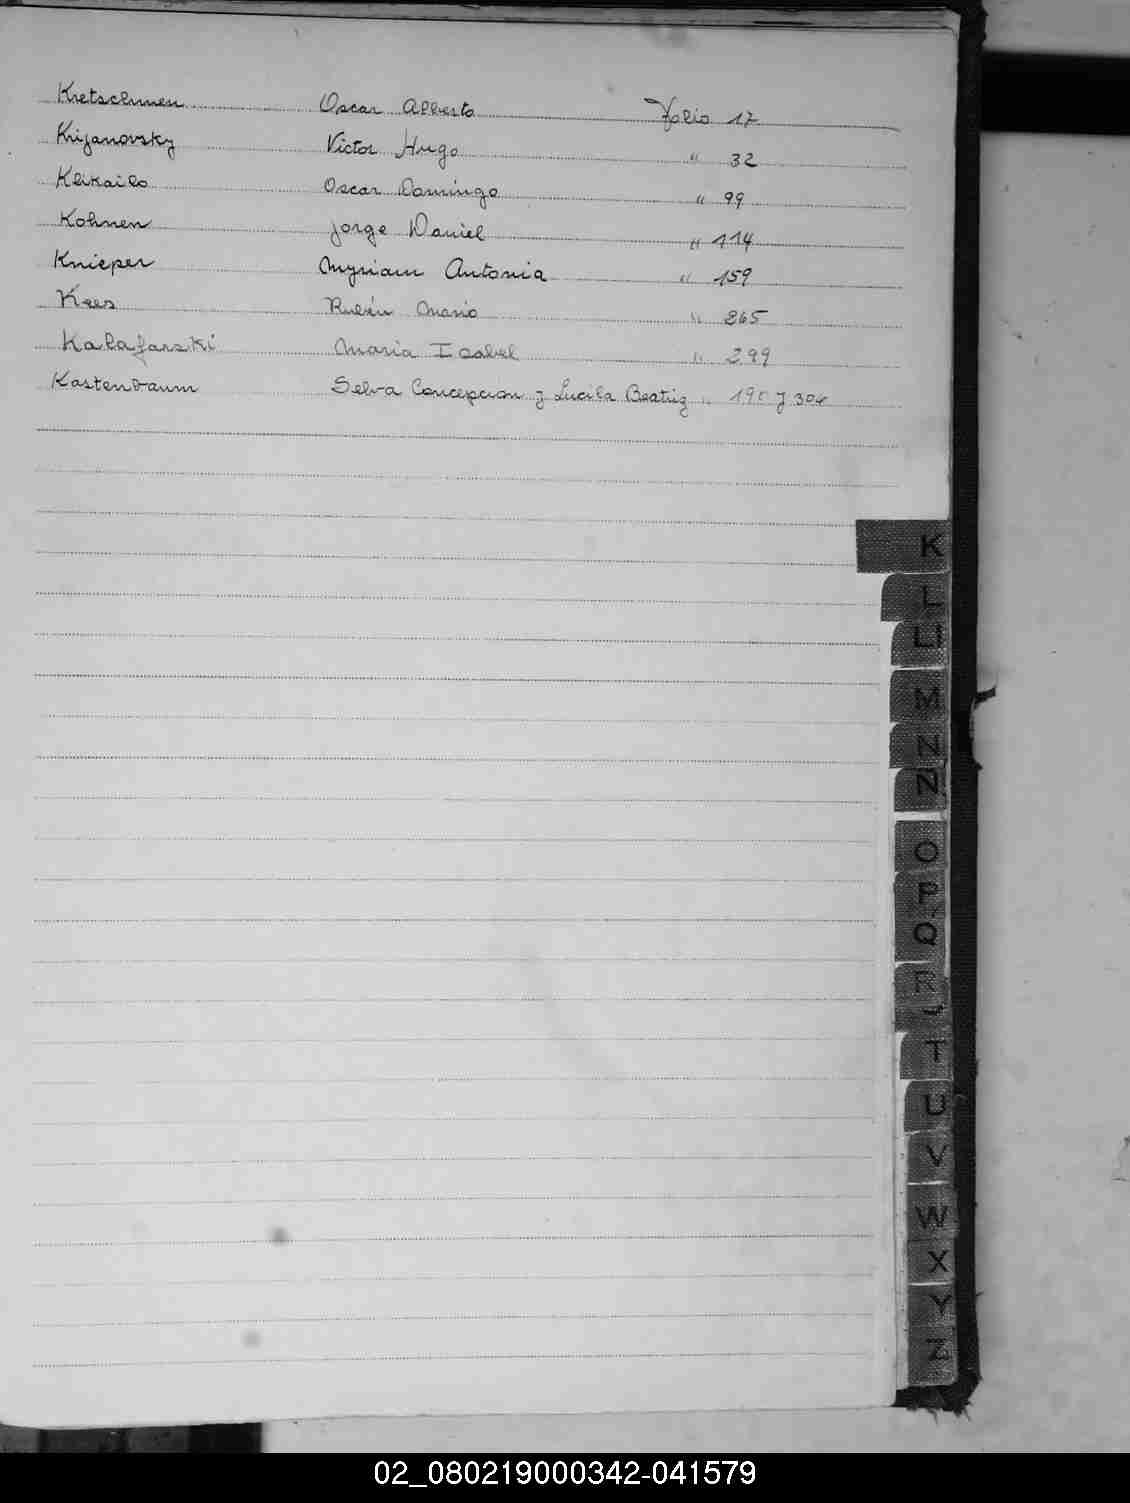 Kretschmen Oscar Alberto Folio 17
Krijanovsky Victor Hugo " 32
Klikailo Oscar Domingo " 99
Kohnen Jorge Daniel " 114
Knieper Myriam Antonia " 159
Kees Rubén Mario " 265
Kalafarski Maria Isabel " 299
Kastenbaum Selva Concepcion y Lucila Beatriz " y 304
K
L
LI
M
N
N
O
P
Q
R
T
U
V
W
X
Y
Z
02_080219000342-041579